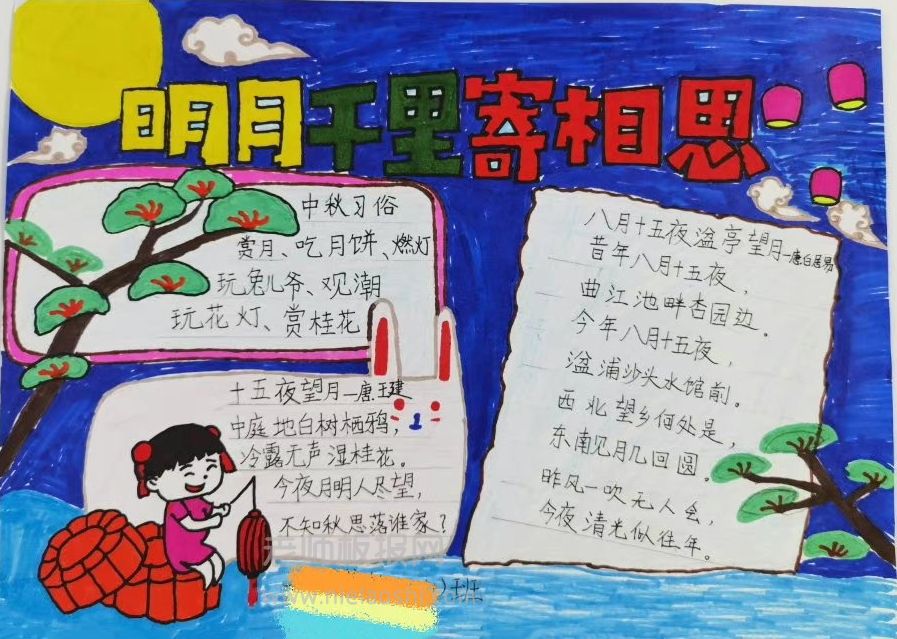 明月千里寄相思
中秋习俗
赏月、吃月饼、燃灯
玩兔儿爷、观潮
玩花灯、赏桂花
十五夜望月—唐.王建
中庭地白树栖鸦，
冷露无声湿桂花。
今夜月明人尽望，
不知秋思落谁家？
八月十五夜湓亭望月—唐白居易
昔年八月十五夜，
曲江池畔杏园边。
今年八月十五夜，
湓浦沙头水馆前。
西北望乡何处是，
东南见月几回圆。
昨风一吹无人会，
今夜清光似往年。
老师板报网
）班